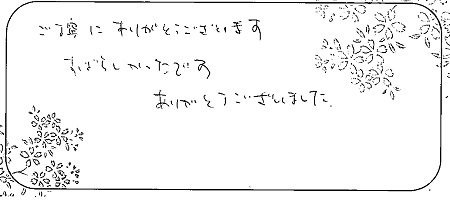 ご丁寧に ありがとうございます
すばらしかったです
ありがとうございました。